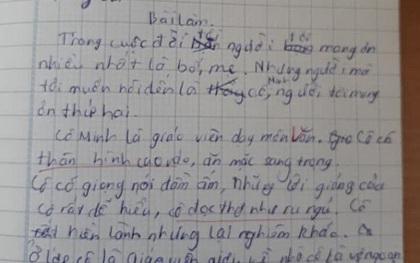 Bài làm.
Trong cuộc đời người mang ơn
nhiều nhất là bố, mẹ. Nhưng người mà
tôi muốn nói đến là cô Minh, người tôi mang
ơn thứ hai.
Cô Minh là giáo viên dạy môn Văn. Cô có
thân hình cao ráo, ăn mặc sang trọng.
Cô có giọng nói đầm ấm, những lời giảng của
cô rất dễ hiểu, cô đọc thơ như ru ngủ. Cô
hiền lành nhưng lại nghiêm khắc.
Ở lớp cô là giáo viên